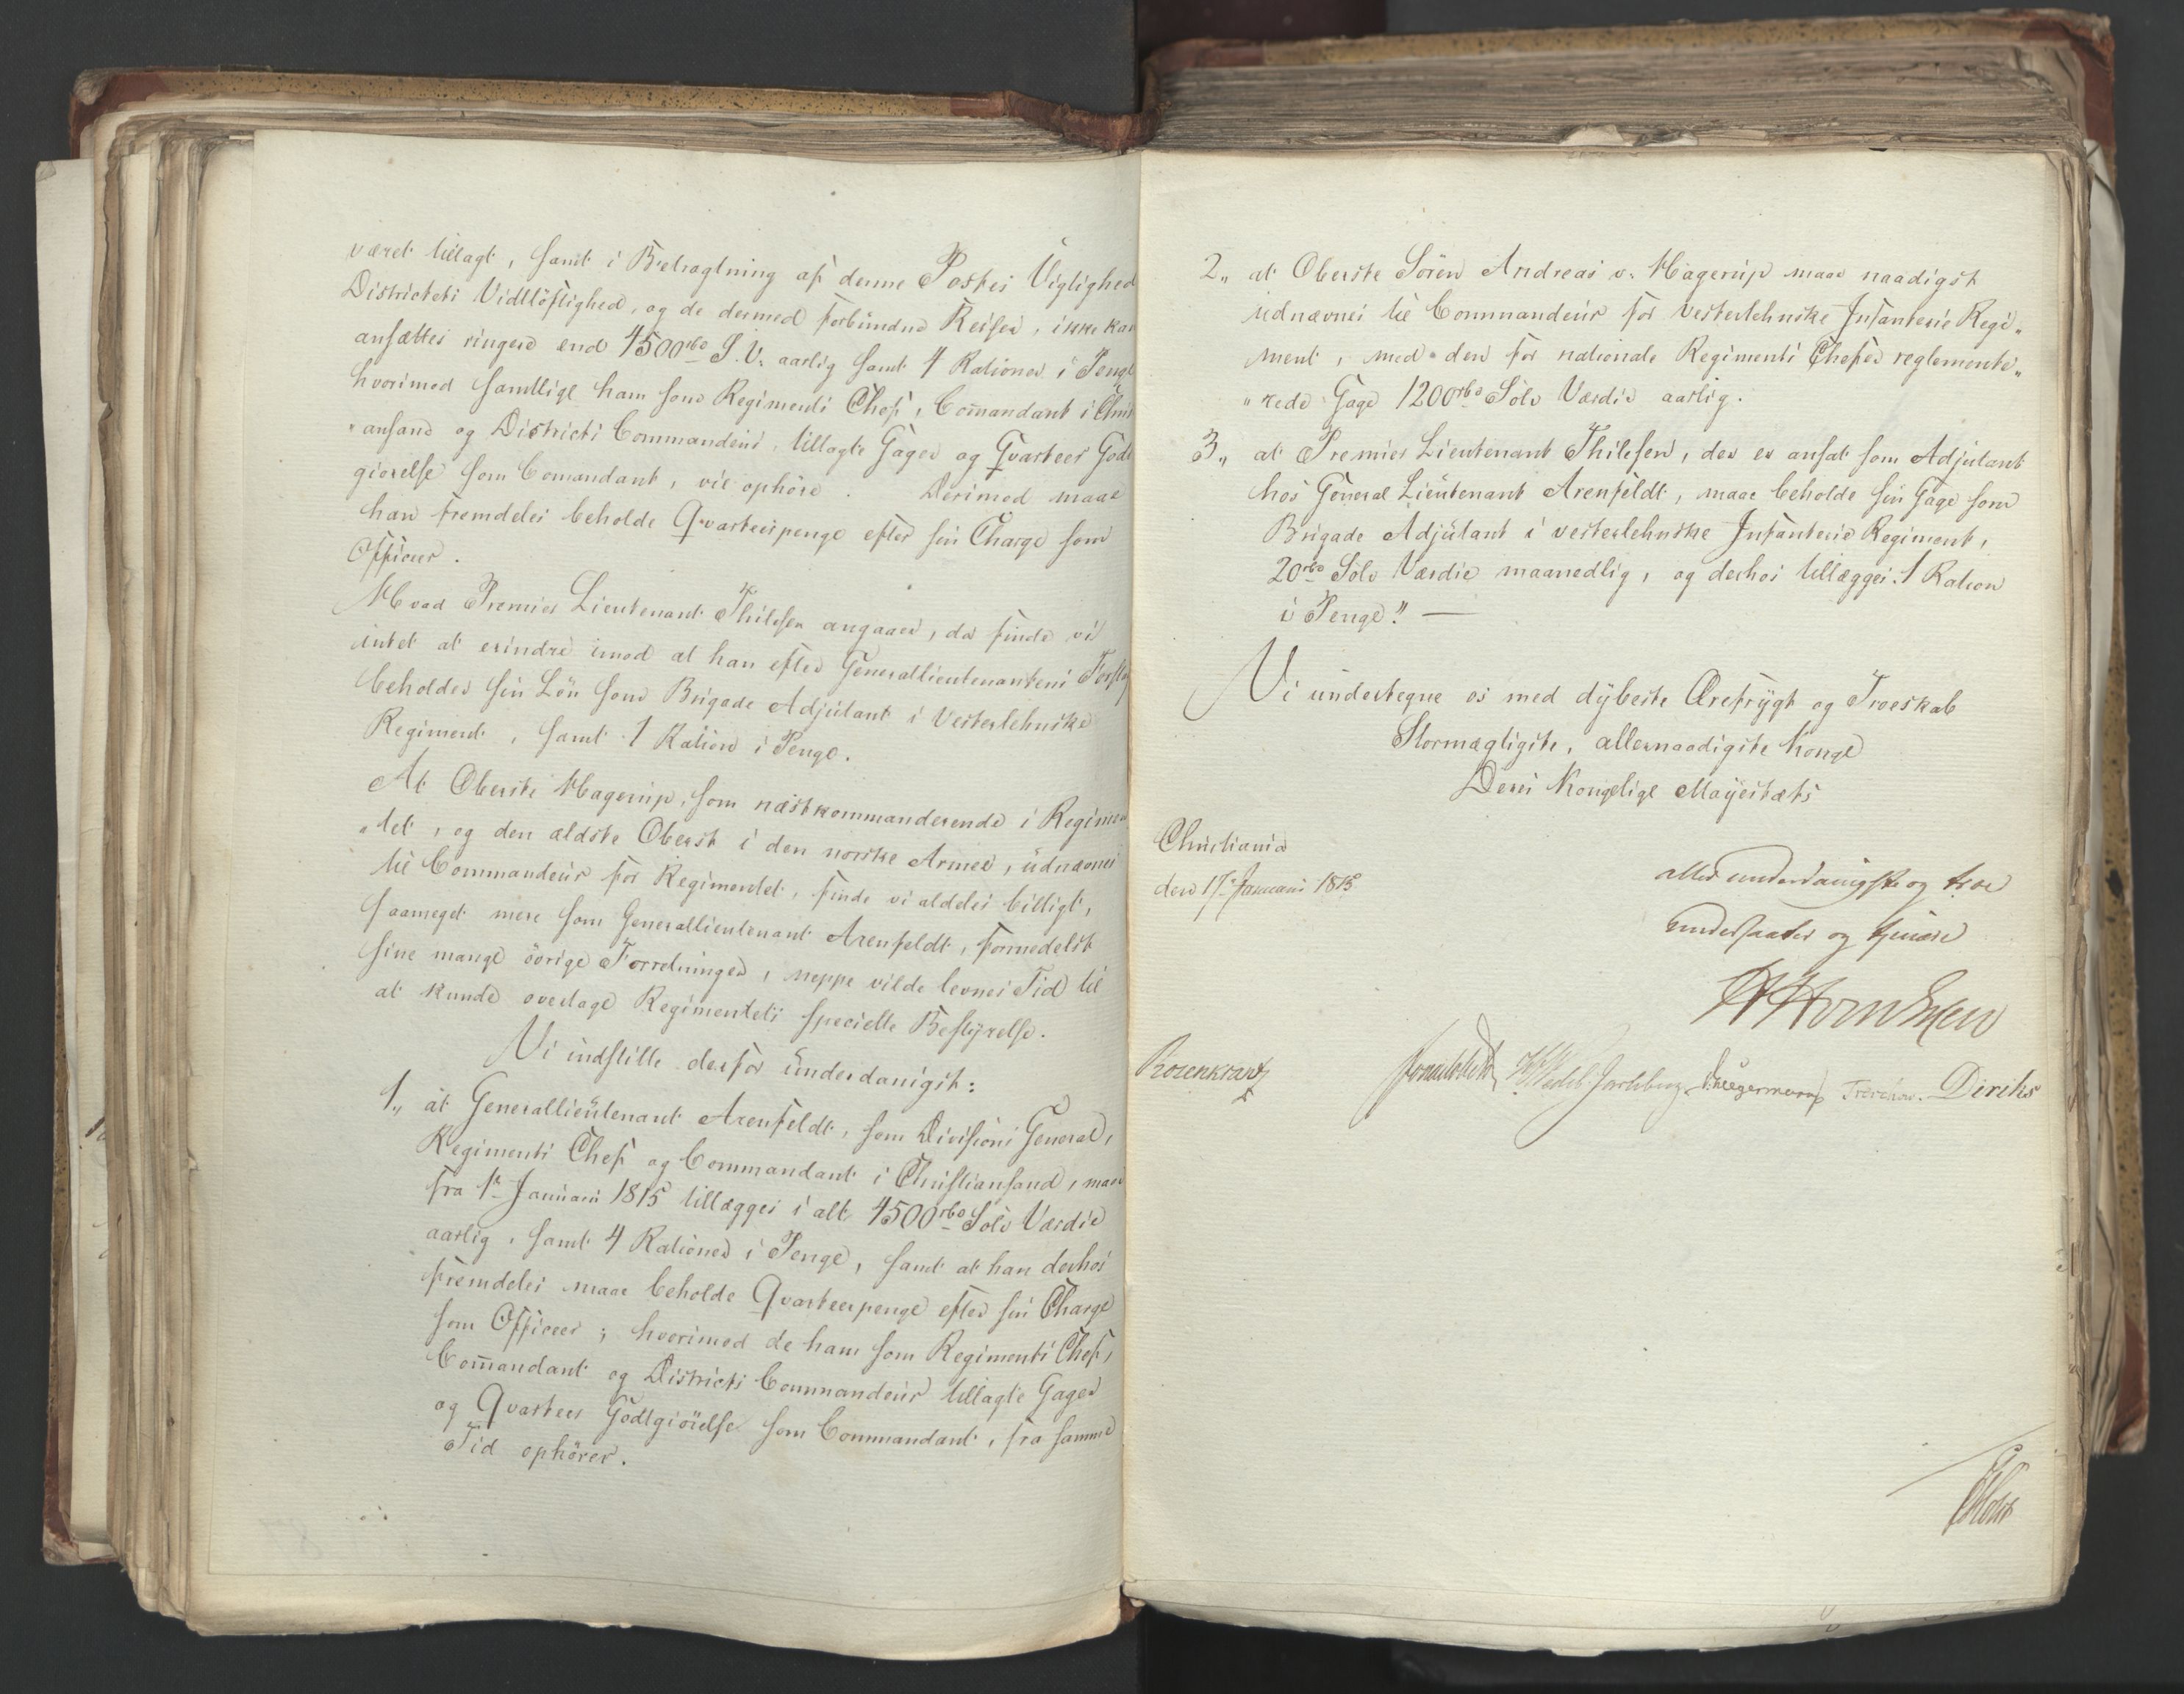 været tillagt, samt i Betragtning af denne Postes Vigtighed
Districtets Vidtløftighed, og de dermed forbundne Reiser, ikke kan
ansættes ringere end 4500 rbd S. V. aarlig samt 4 Rationer i Penge
hvorimod samtlige ham som Regiments Chef, Com̄andant i Christi
"ansand og Districts Commandeur, tillagte Gager og Qvarteer Godt
giørelse som Comandant, vil ophøre. Derimod maae
han fremdeles beholde Qvarteerpenge efter sin Charge som
Officeer.
Hvad Premier Lieutenant Thilesen angaaer, da finde vi
intet at erindre imod at han efter Generallieutenantens Forslag
beholder sin Løn som Brigade Adjutant i Vesterlehnske
Regiment, samt 1 Ration i Penge.
At Oberste Hagerup, som næstkommanderende i Regimen
"tet, og den ældste Oberst i den norske Armee, udnævnes
til Commandeur for Regimentet, finde vi aldeles billigt,
saameget mere som Generallieutenant Arenfeldt, formedelst
sine mange øvrige Forretninger, neppe vilde levnes Tid til
at kunde overtage Regimentets specielle Bestyrelse.
Vi indstille derfor underdanigst:
1,, at Generallieutenant Arenfeldt, som Divisions General,
Regiments Chef og Commandant i Christiansand, maae
fra 1te Januari 1815 tillægges i alt 4500 rbd Sølv Værdie
aarlig, samt 4 Rationer i Penge, samt at han derhos
fremdeles maae beholde Qvarteerpenge efter sin Charge
som Officeer; hvorimod de ham som Regiments Chef,
Com̄andant og Districts Commandeur tillagte Gager
og Qvarteer Godtgiørelse som Commandant, fra samme
Tid ophører.
2,, at Oberste Sören Andreas v. Hagerup maae naadigst
udnævnes til Commandeur for vesterlehnske Infanterie Regi„
ment, med den for nationale Regiments Chefer reglemente„
"rede Gage 1200 rbd Sølv Værdie aarlig.
3,, at Premier Lieutenant Thilesen, der er ansat som Adjutant
hos General Lieutenant Arenfeldt, maae beholde sin Gage som
Brigade Adjutant i vesterlehnske Infanterie Regiment,
20 rbd Sølv Værdie maanedlig, og derhos tillægges 1 Ration
i Penge." —
Vi undertegne os med dybeste Ærefrygt og Troeskab
Stormægtigste, allernaadigste Konge
Deres Kongelige Mayestæts
Christiania
den 17de Januari 1815
allerunderdanigste og troe
undersaatter og tjenere
Rosenkrantz
Sommerhielm HWedel Jarlsberg Krugermann Treschow. Diriks
Holst